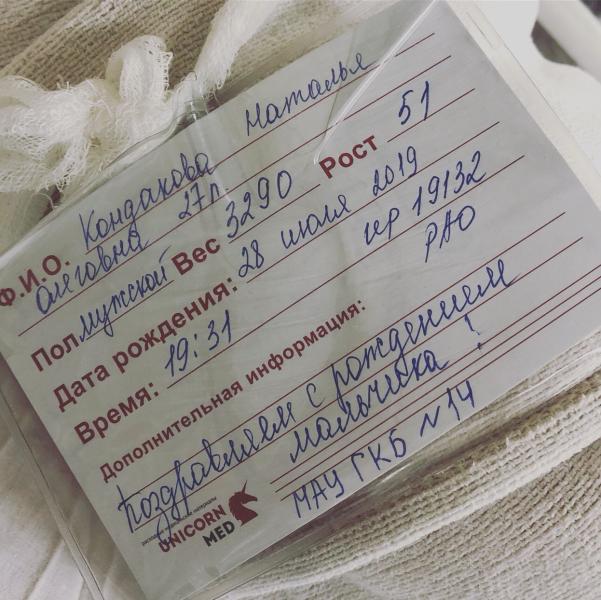 Ф.И.О. Кондакова Наталья
Олеговна 27л
Пол мужской Вес 3290 Рост 51
Дата рождения: 28 июля 2019
Время: 19:31 ир 19132
РАО
Дополнительная информация:
Поздравляем с рождением
мальчика!
МАУ ГКБ N 14
UNICORN
MED